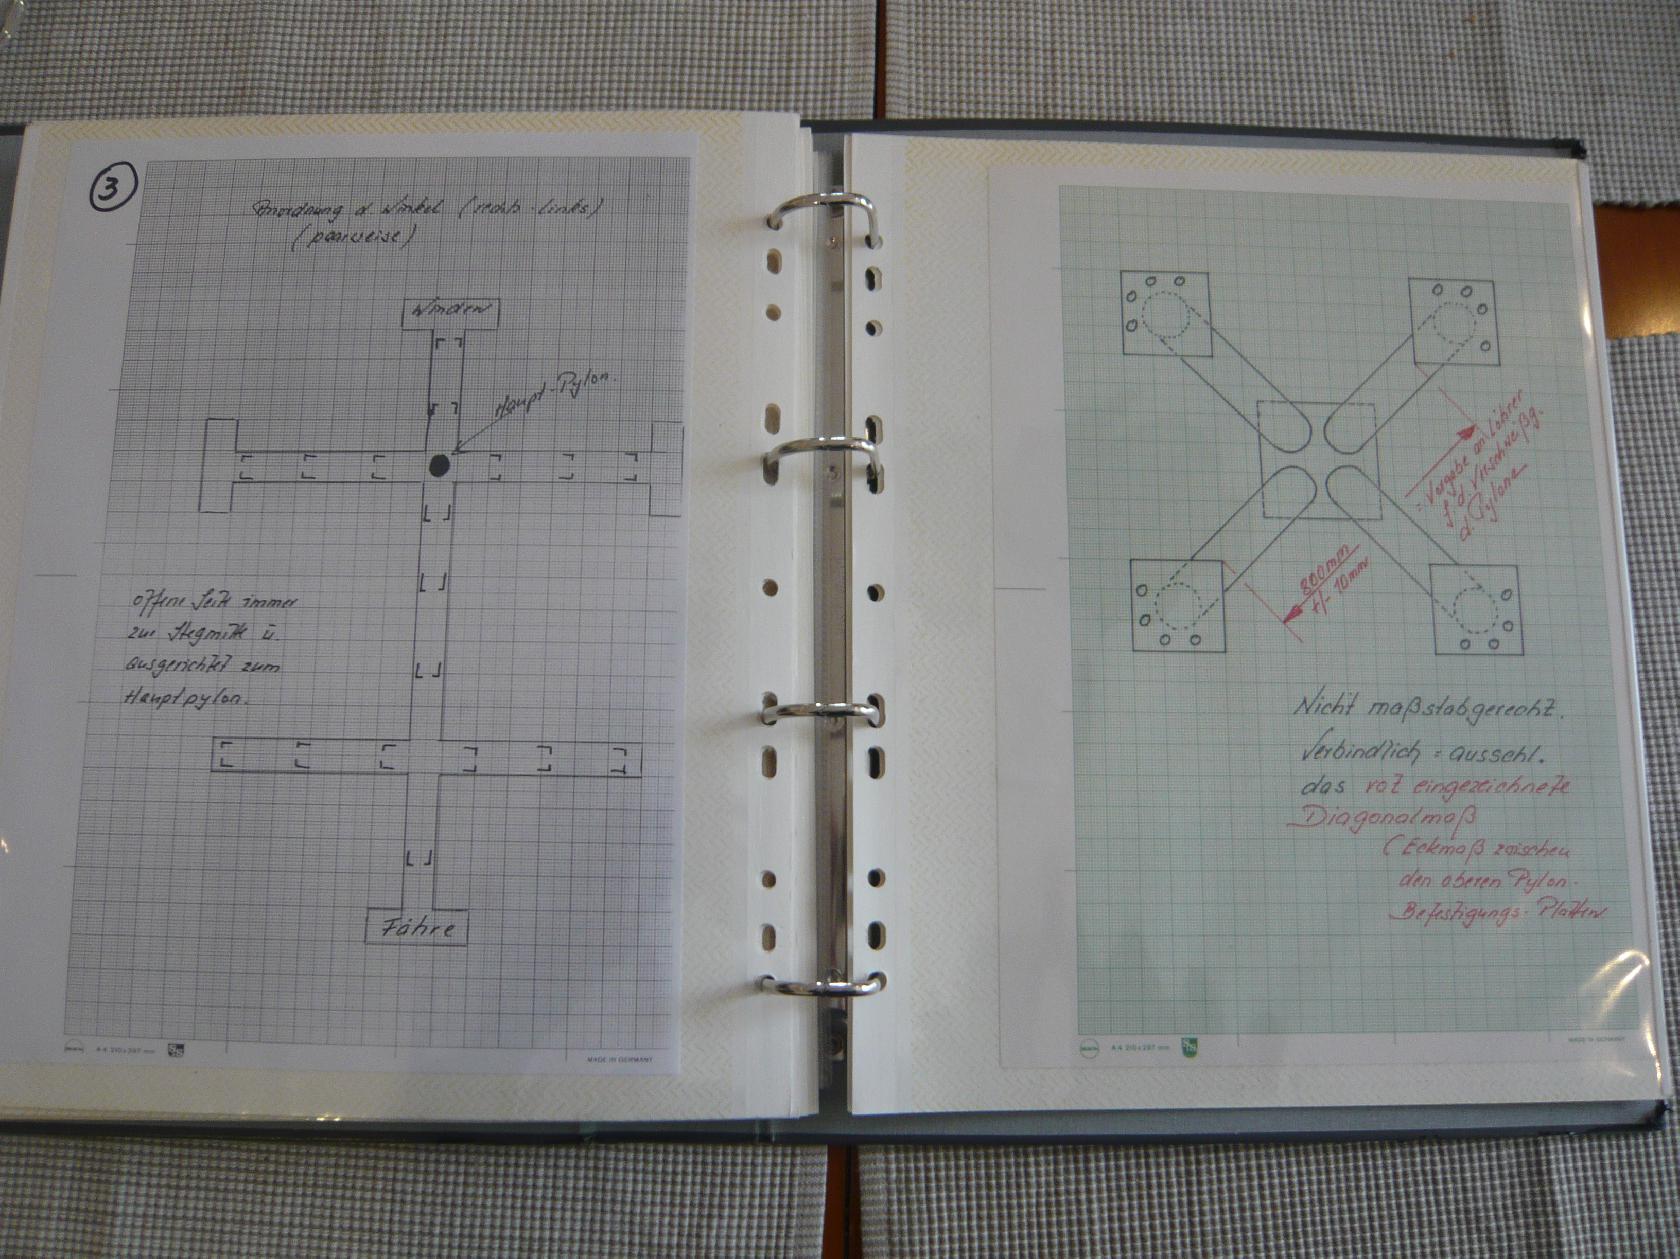 3
Anordnung d. Winkel (rechts-links)
(paarweise)
Winden
Haupt-Pylon.
offene Seite immer
zur Stegmitte u.
ausgerichtet zum
Hauptpylon.
Fähre
A4 210x297 mm
MADE IN GERMANY
= Vorgabe an Löhrer
f. d. Verschweißg.
d. Pylone
800mm
+/- 10mm
Nicht maßstabgerecht.
Verbindlich = ausschl.
das rot eingezeichnete
Diagonalmaß
(Eckmaß zwischen
den oberen Pylon-
Befestigungs-Platten
A4 210x297 mm
MADE IN GERMANY